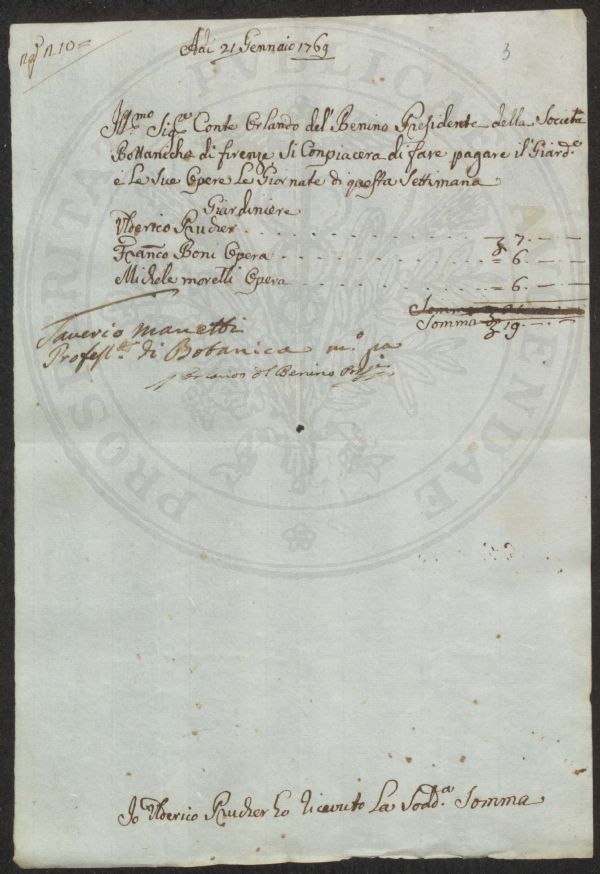 n° 10=
Adi 21 Gennaio 1769
3
Ill.mo Sig.re Conte Orlando del Benino Presidente della Società
Bottanicha di firenze Si Conpiacera di fare pagare il Giard.e
e Le Sue Opere Le Giornate di questa Settimana
Giardiniere
Ulderico Prucher . . . . . . . . . 7. - -
Fran.co Boni Opera . . . . . . . . = 6. - -
Michele morelli Opera . . . . . . = 6. - -
Somma
Somma 19 - -
Saverio Manetti
Profess.re di Botanica m.o pa
Orlando del Benino Pres.e
Io Ulderico Prucher ho ricevuto La Sodd.a Somma
PUBLICAE
PROSPERITATI
AUGENDAE